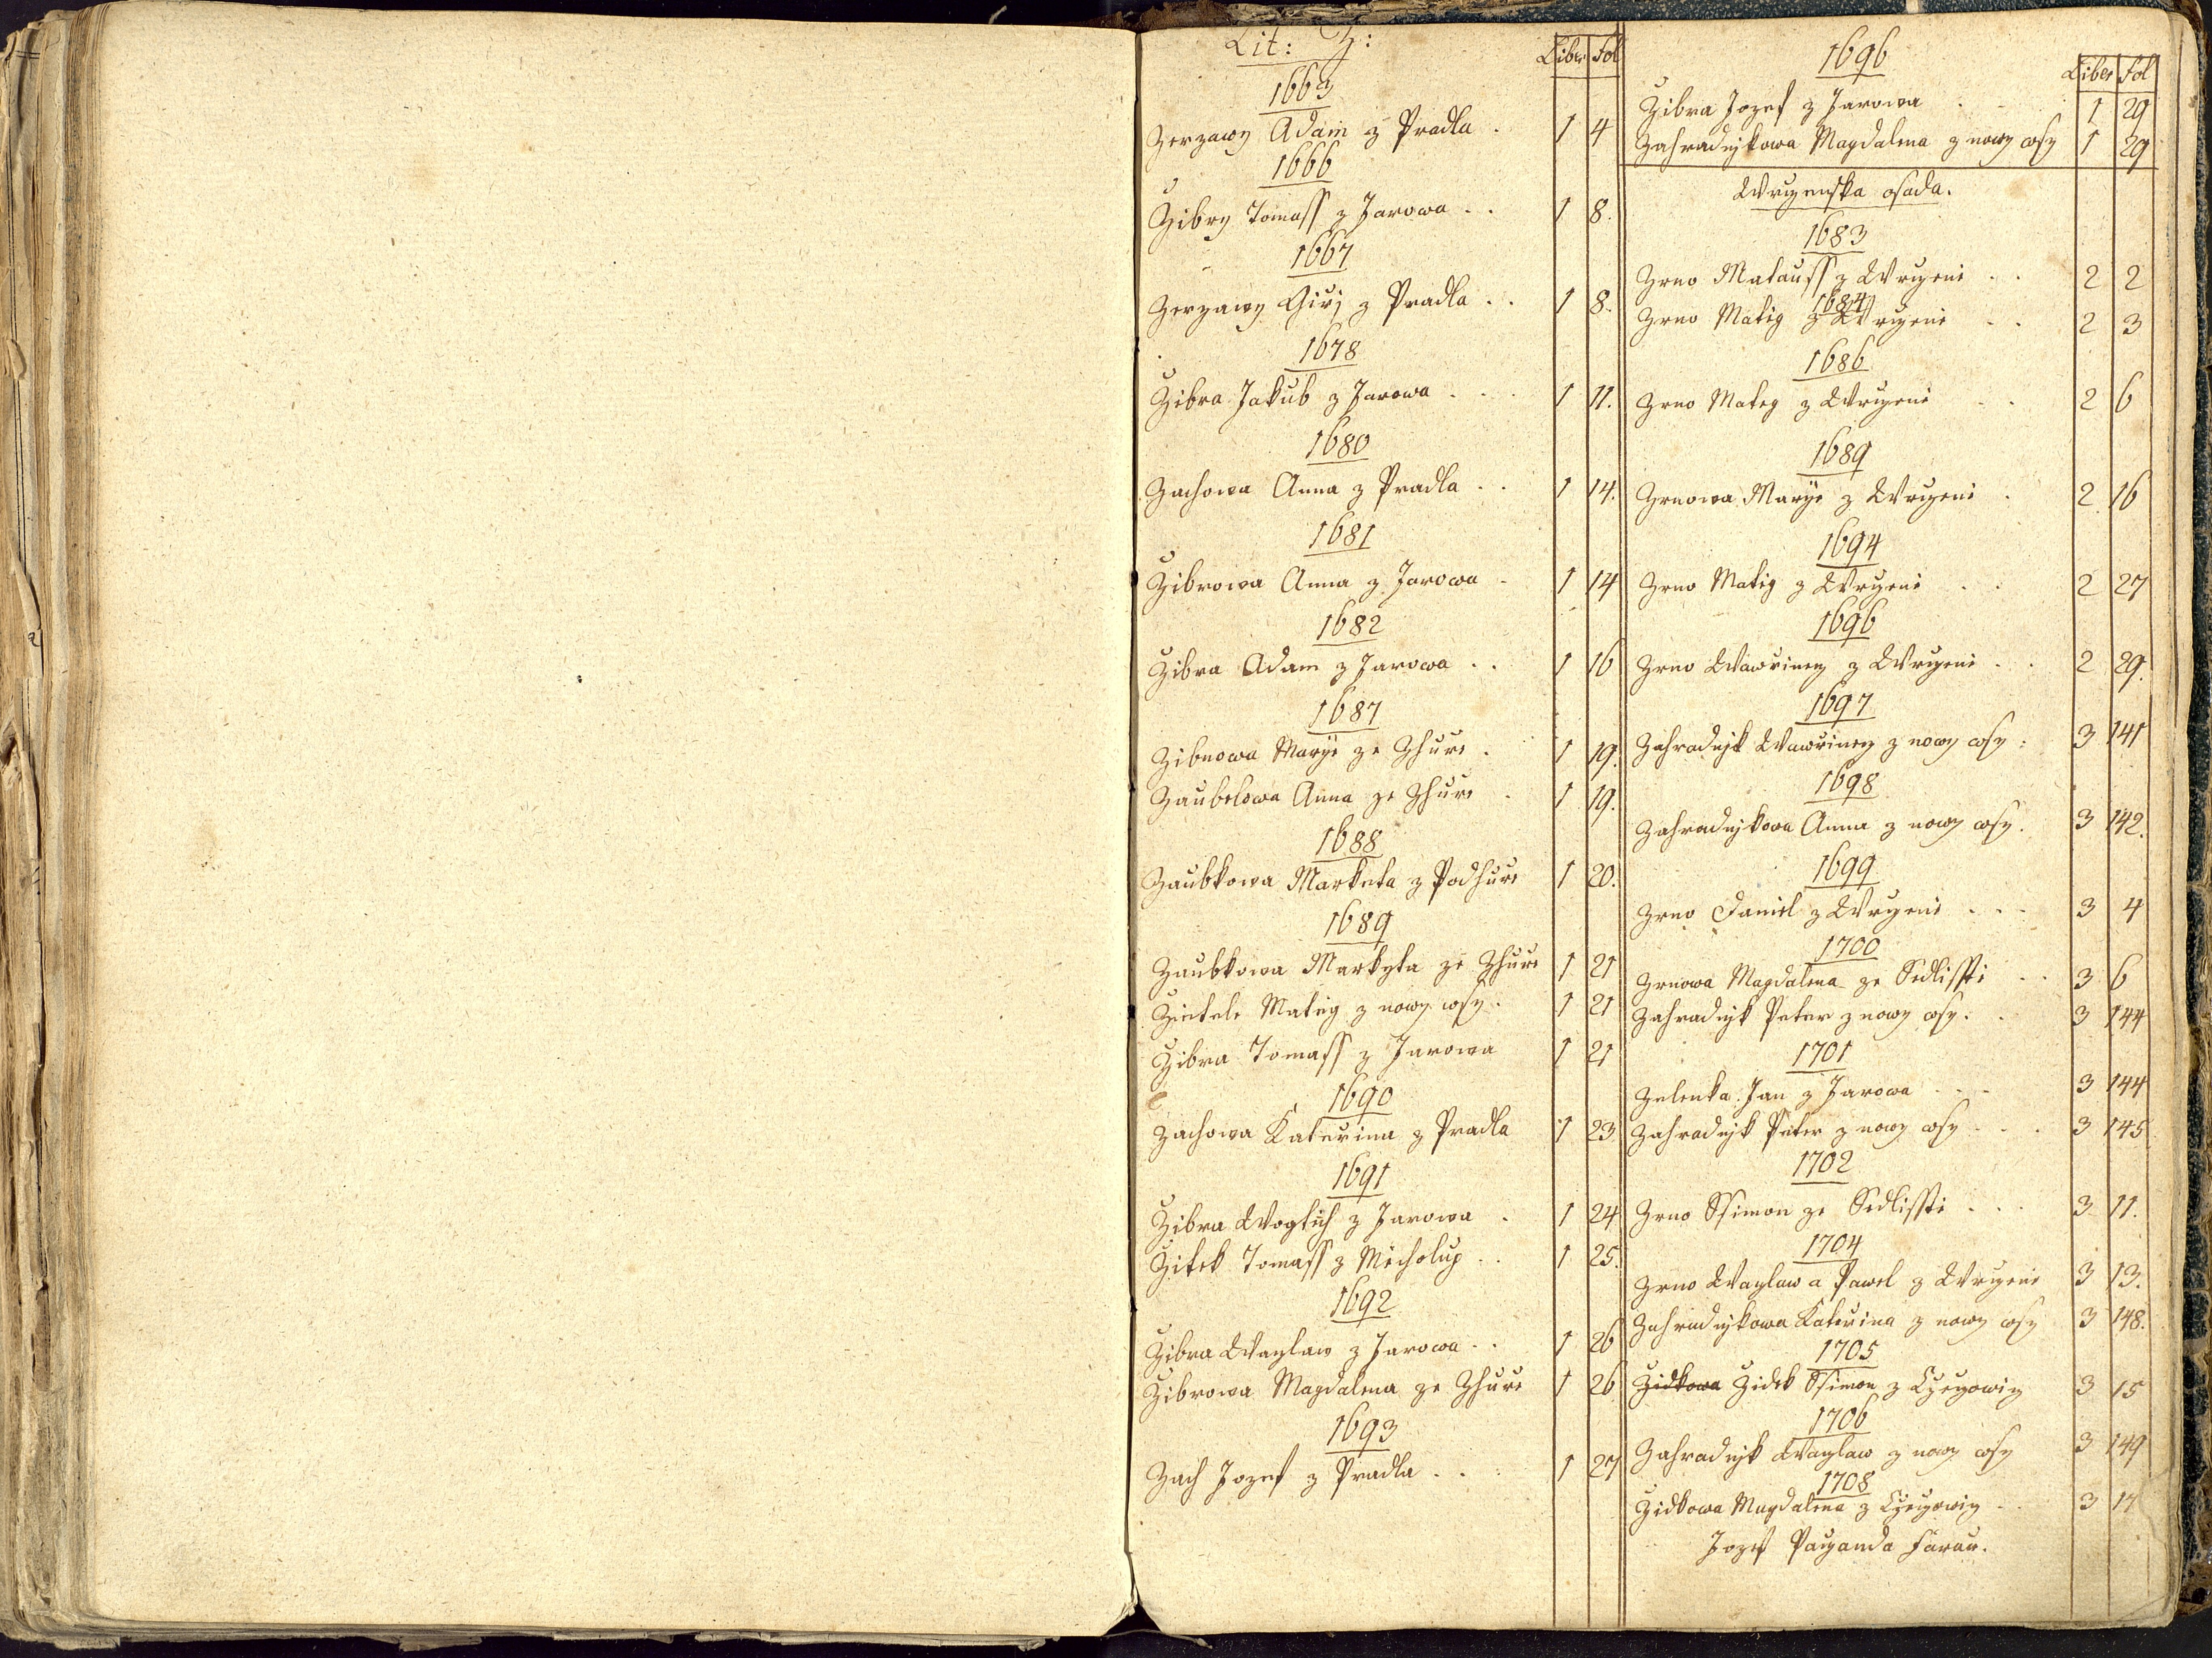 Lit: Z:
Liber Fol
1663
Zerzawy Adam z Pradla . 1 4
1666
Žibry Tomass z Jarowa . . 1 8.
1667
Zerzawy Girj z Pradla . . 1 8.
1678
Žibra Jakub z Jarowa . . . 1 11.
1680
Zachowa Anna z Pradla . . 1 14.
1681
Žibrowa Anna z Jarowa . 1 14
1682
Žibra Adam z Jarowa . . 1 16
1687
Zibnowa Marye ze Zhuře . 1 19.
Zaubelowa Anna ze Zhuře . 1 19.
1688
Zaubkowa Marketa z Podhuře 1 20.
1689
Zaubkowa Markyta ze Zhuře 1 21
Matieg z nowy wsy . 1 21
Žibra Tomass z Jarowa 1 21
1690
Zachowa Kateřina z Pradla 1 23
1691
Žibra Wogtich z Jarowa . 1 24
Žitek Tomass z Micholup . . 1 25.
1692
Žibra Waczlaw z Jarowa . . 1 26
Žibrowa Magdalena ze Zhuře 1 26
1693
Zach Jozef z Pradla . . . 1 27
1696
Liber Fol
Žibra Jozef z Jarowa . 1 29
Zahradnjkowa Magdalena z nowy wsy 1 29
Wrczenska osada.
1683
Zrno Matauss z Wrczenie . . 2 2
1684
Zrno Matieg z Wrczenie . . 2 3
1686
Zrno Mateg z Wrczenie . . 2 6
1689
Zrnowa Marye z Wrczenie . 2 16
1694
Zrno Matieg z Wrczenie . . 2 27
1696
Zrno Wawřinecz z Wrczenie . . 2 29.
1697
Zahradnjk Wawřinecz z nowy wsy : 3 141
1698
Zahradnjkowa Anna z nowy wsy . 3 142.
1699
Zrno Daniel z Wrczenie . . . 3 4
1700
Zrnowa Magdalena ze Sedlisstie . . 3 6
Zahradnjk Peter z nowy wsy . . 3 144
1701
Zelenka Jan z Jarowa . . . 3 144
Zahradnjk Peter z nowy wsy . . . 3 145
1702
Zrno Ssimon ze Sedlisstie . . . 3 11.
1704
Zrno Waczlaw a Pawel z Wrczenie 3 13.
Zahradnjkowa Kateřina z nowy wsy 3 148.
1705
Židkowa Židek Ssimon z Cžeczowicz 3 15
1706
Zahradnjk Waczlaw z nowy wsy 3 149
1708
Židkowa Magdalena z Cžeczowicz . . 3 17
Jozef Fararz.